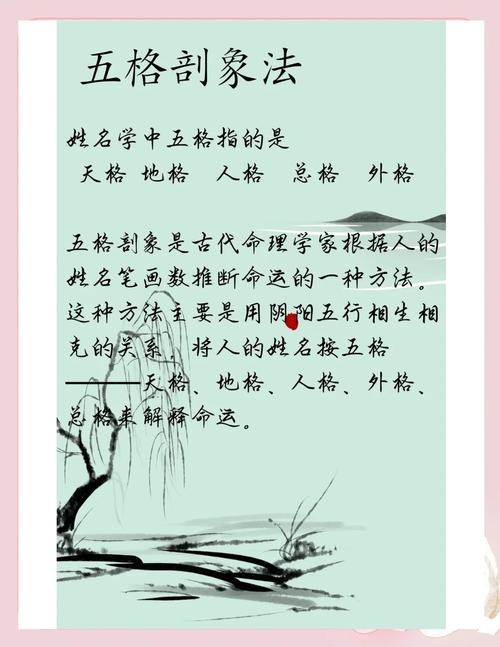 五格剖象法
姓名学中五格指的是
天格 地格 人格 总格 外格
五格剖象是古代命理学家根据人的
姓名笔画数推断命运的一种方法。
这种方法主要是用阴阳五行相生相
克的关系，将人的姓名按五格
——天格、地格、人格、外格、
总格来解释命运。